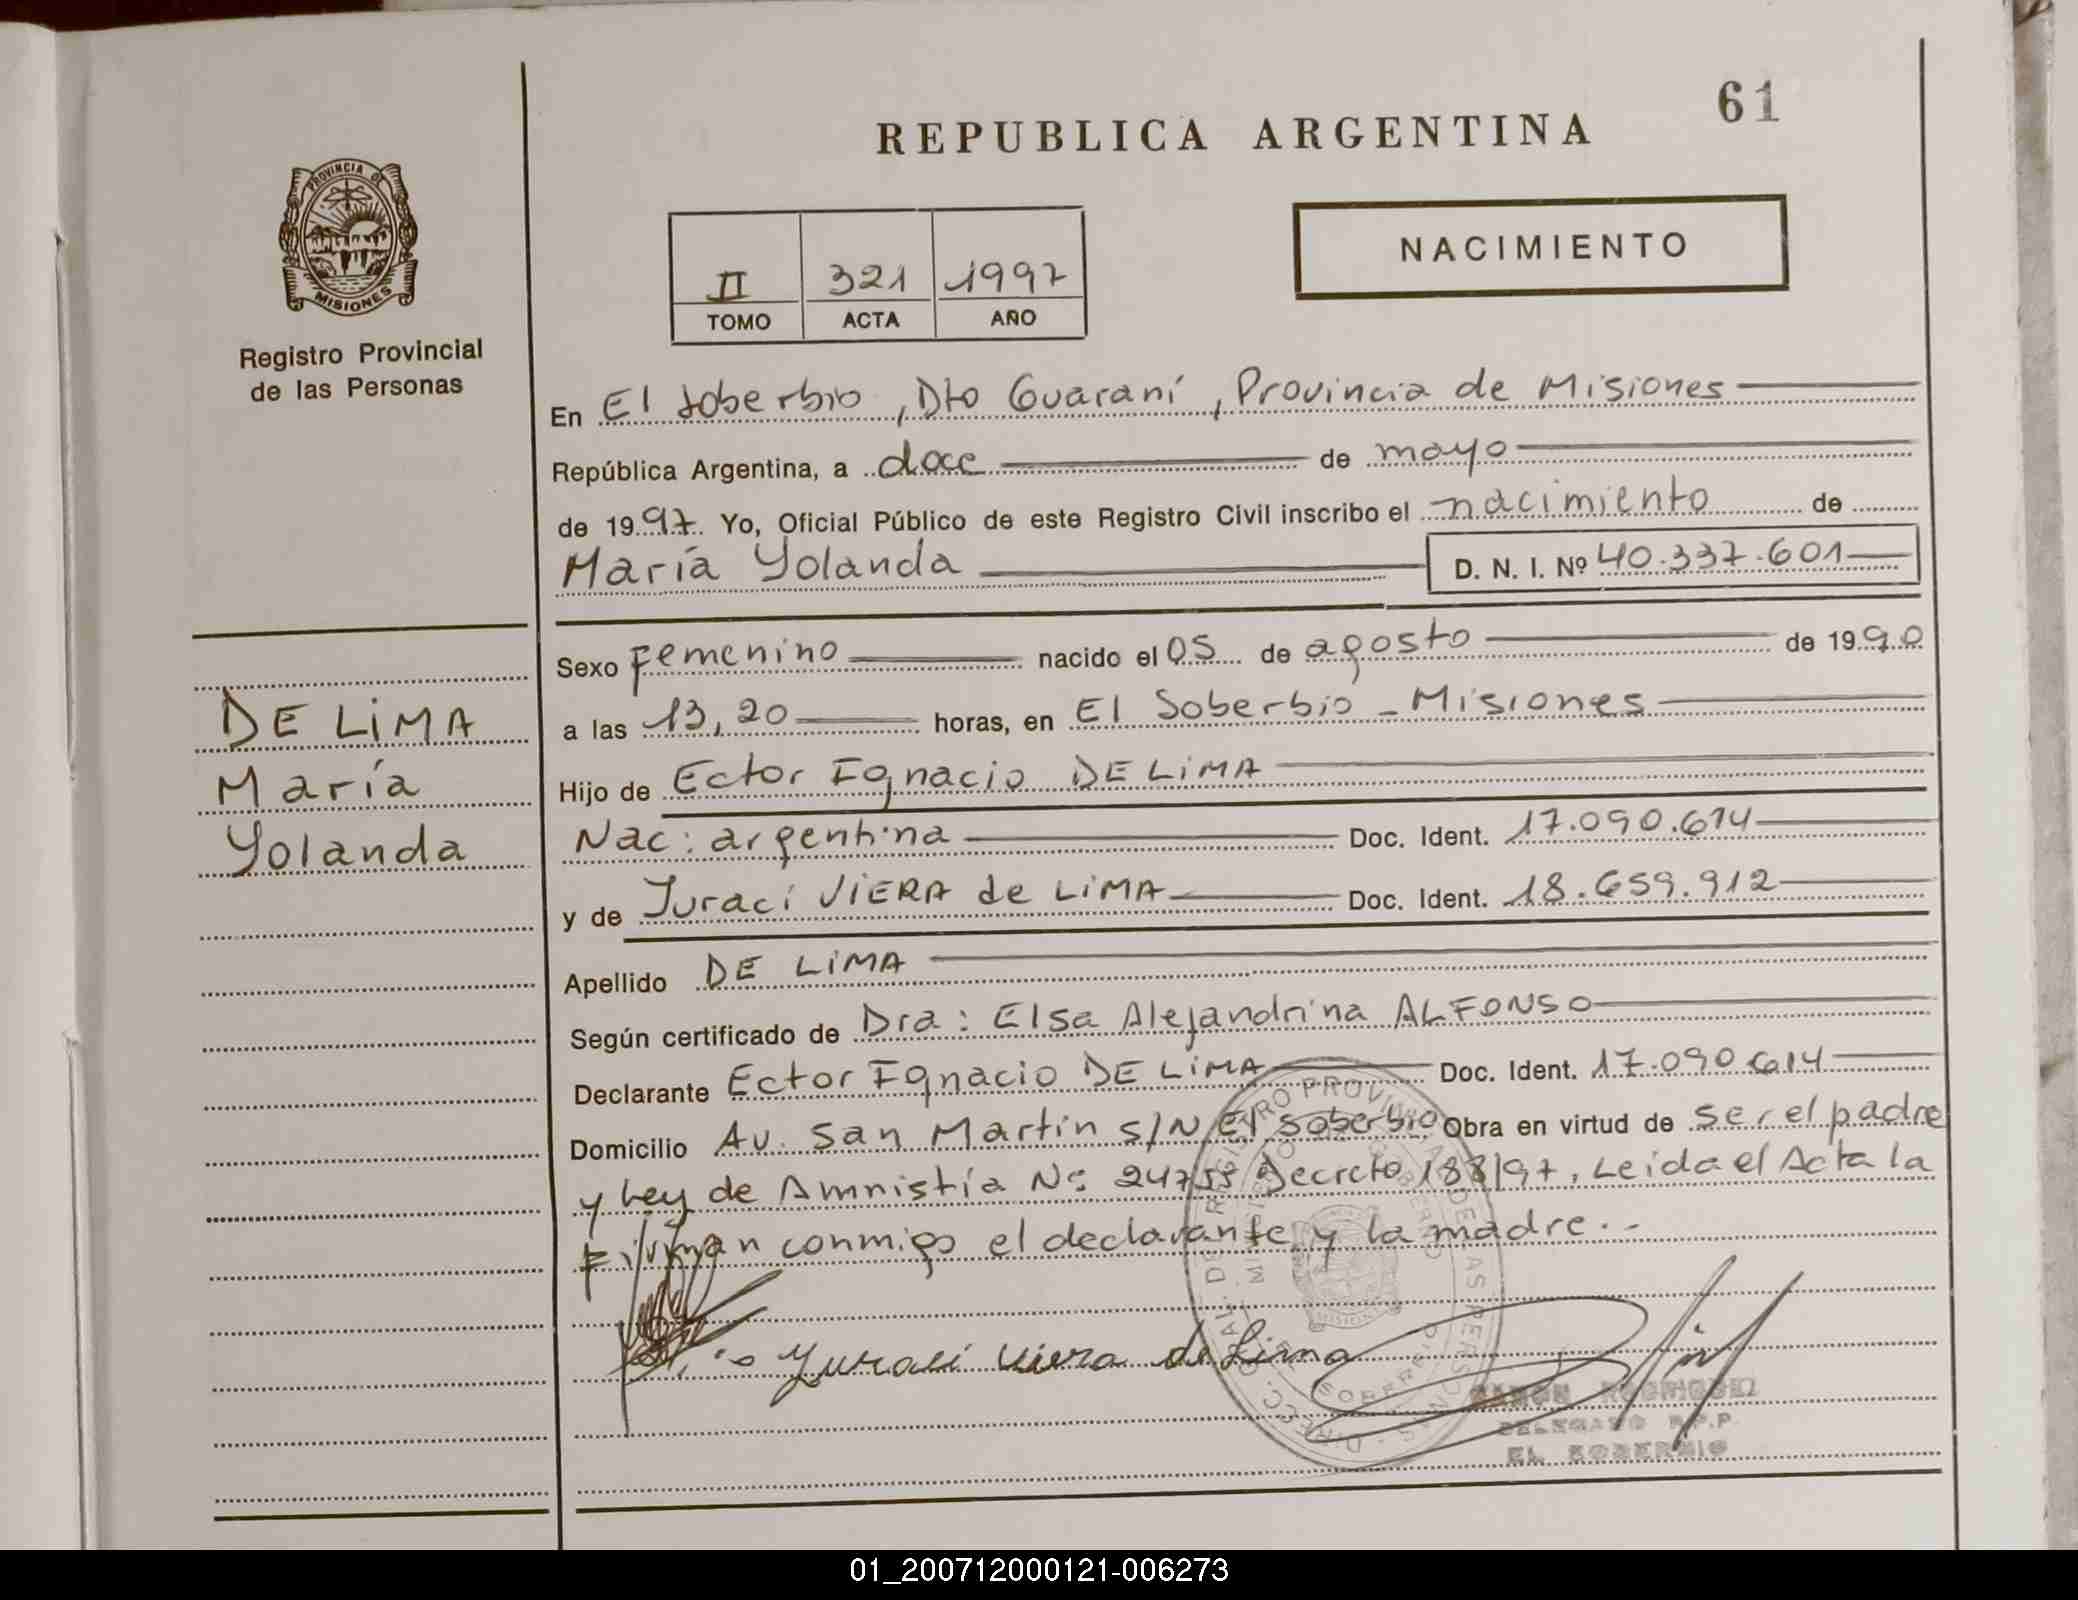 61
REPUBLICA ARGENTINA
NACIMIENTO
PROVINCIA DE
MISIONES
Registro Provincial
de las Personas
II 321 1997
TOMO ACTA AÑO
En El Soberbio, Dto Guaraní, Provincia de Misiones
República Argentina, a doce de mayo
de 1997. Yo, Oficial Público de este Registro Civil inscribo el nacimiento de
María Yolanda D. N. I. Nº 40.337.601
Sexo Femenino nacido el 05 de agosto de 1990
a las 13,20 horas, en El Soberbio - Misiones
Hijo de Ector Ignacio DE LIMA
Nac: argentina Doc. Ident. 17.090.614
y de Juraci VIERA de LIMA Doc. Ident. 18.659.912
Apellido DE LIMA
Según certificado de Dra: Elsa Alejandrina ALFONSO
Declarante Ector Ignacio DE LIMA Doc. Ident. 17.090.614
Domicilio Av. San Martin S/N El Soberbio Obra en virtud de ser el padre
y Ley de Amnistía Nº 24755 Decreto 188/97, Leida el Acta la
Firman conmigo el declarante y la madre.-
DE LIMA
María
Yolanda
Juraci Viera de Lima
RAMON RODRIGUEZ
DELEGADO R.P.P.
EL SOBERBIO
01_200712000121-006273